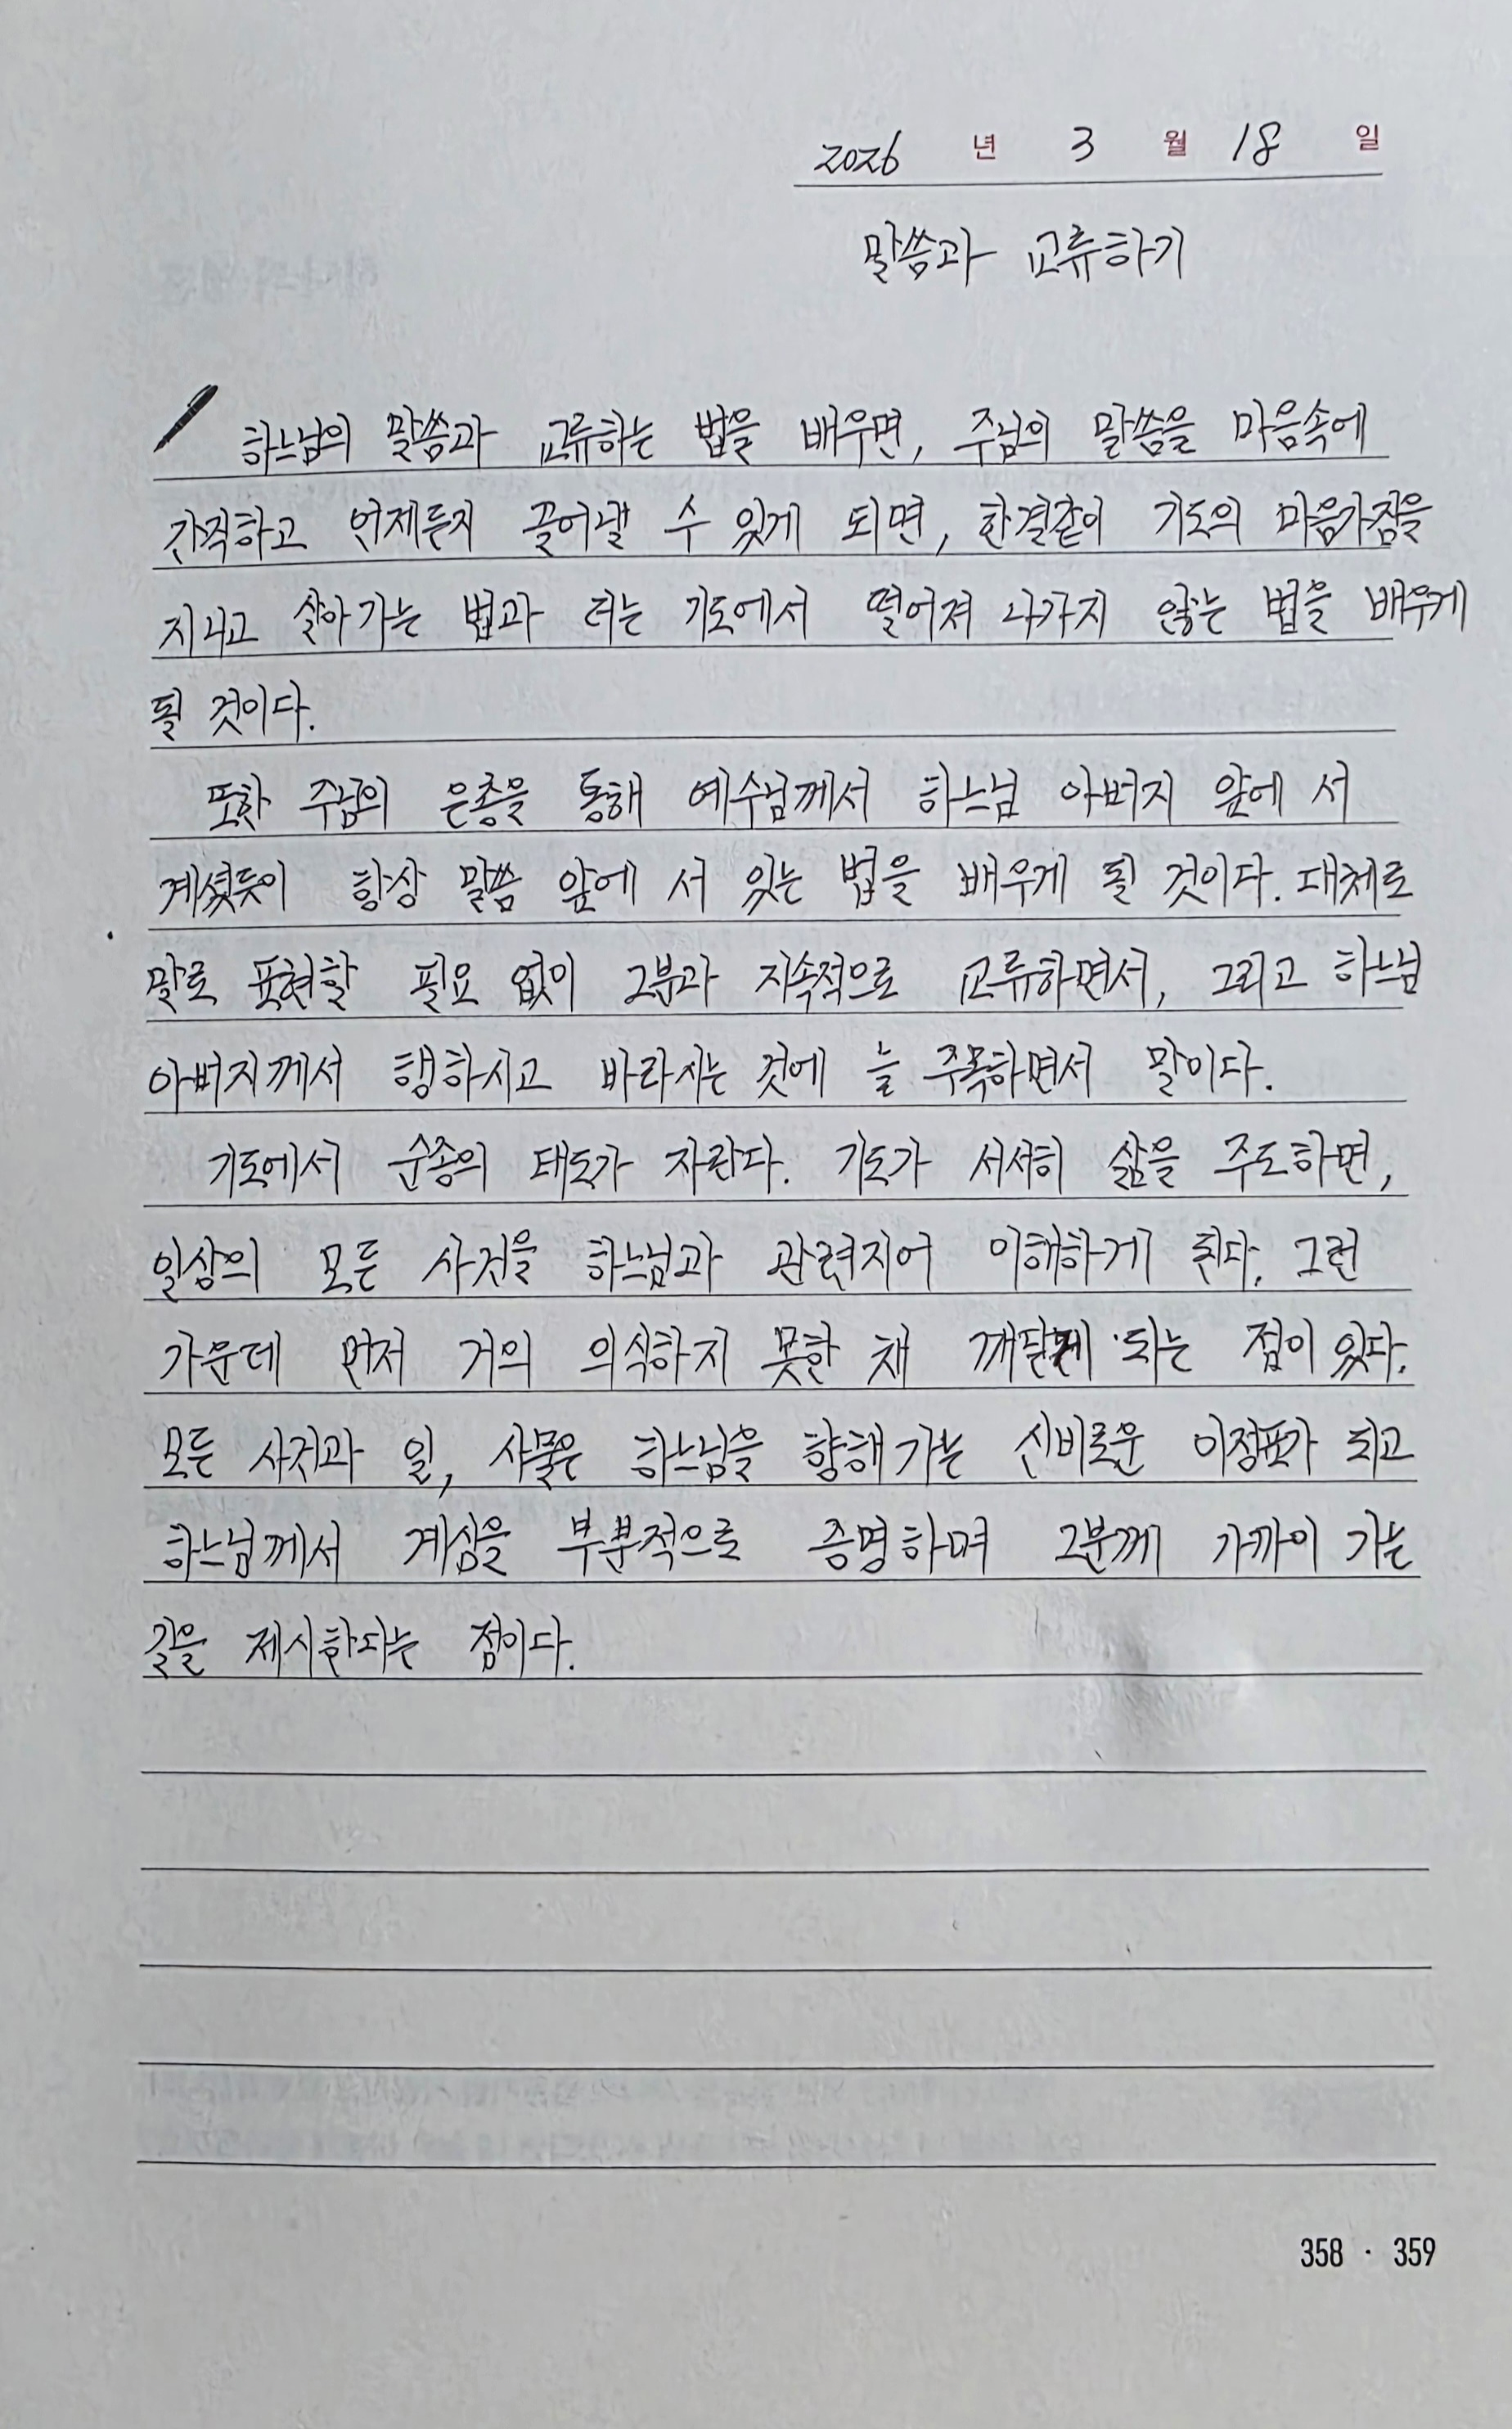 2026 년 3 월 18 일
말씀과 교류하기
하느님의 말씀과 교류하는 법을 배우면, 주님의 말씀을 마음속에
간직하고 언제든지 끌어낼 수 있게 되면, 한결같이 기도의 마음가짐을
지니고 살아가는 법과 더는 기도에서 떨어져 나가지 않는 법을 배우게
될 것이다.
또한 주님의 은총을 통해 예수님께서 하느님 아버지 앞에 서
계셨듯이 항상 말씀 앞에 서 있는 법을 배우게 될 것이다. 대체로
말로 표현할 필요 없이 그분과 지속적으로 교류하면서, 그리고 하느님
아버지께서 행하시고 바라시는 것에 늘 주목하면서 말이다.
기도에서 순종의 태도가 자란다. 기도가 서서히 삶을 주도하면,
일상의 모든 사건을 하느님과 관련지어 이해하게 된다. 그런
가운데 먼저 거의 의식하지 못한 채 깨닫게 되는 점이 있다.
모든 사건과 일, 사물은 하느님을 향해 가는 신비로운 이정표가 되고
하느님께서 계심을 부분적으로 증명하며 그분께 가까이 가는
길을 제시한다는 점이다.
358 · 359